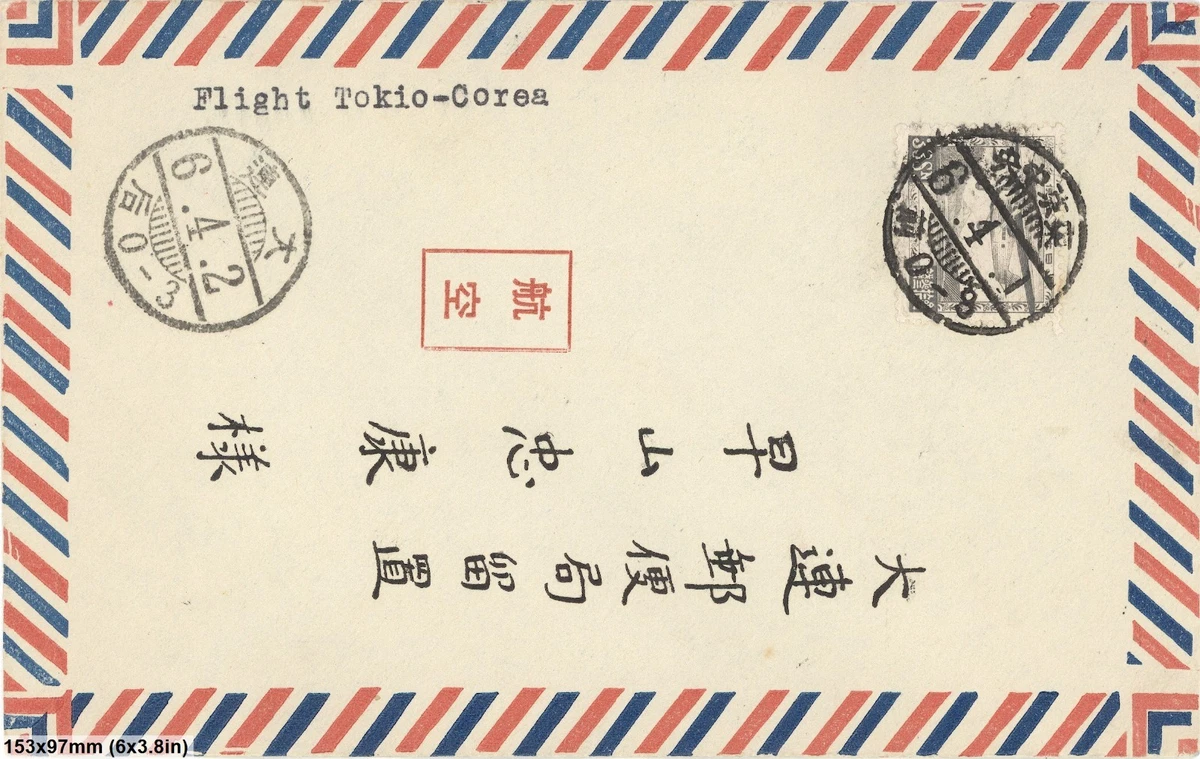 Flight Tokio-Corea
大連
6.4.2
后0-3
東京中央
6.4.1
前0-
航空
大連郵便局留置
早山忠康様
153x97mm (6x3.8in)